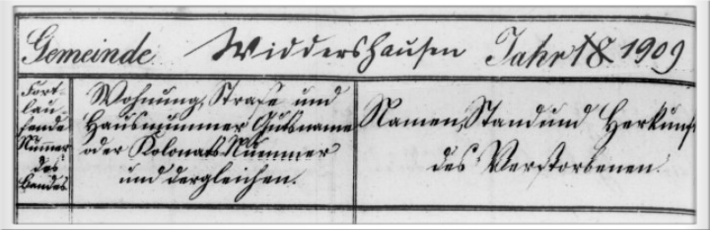 Gemeinde Widdershausen Jahr 18 1909
Fort-
lau-
fende
Nummer
des
Bandes
Wohnung, Straße und
Hausnummer Gutsname
oder Kolonats Nummer
und dergleichen.
Namen, Stand und Herkunf
des Verstorbenen.